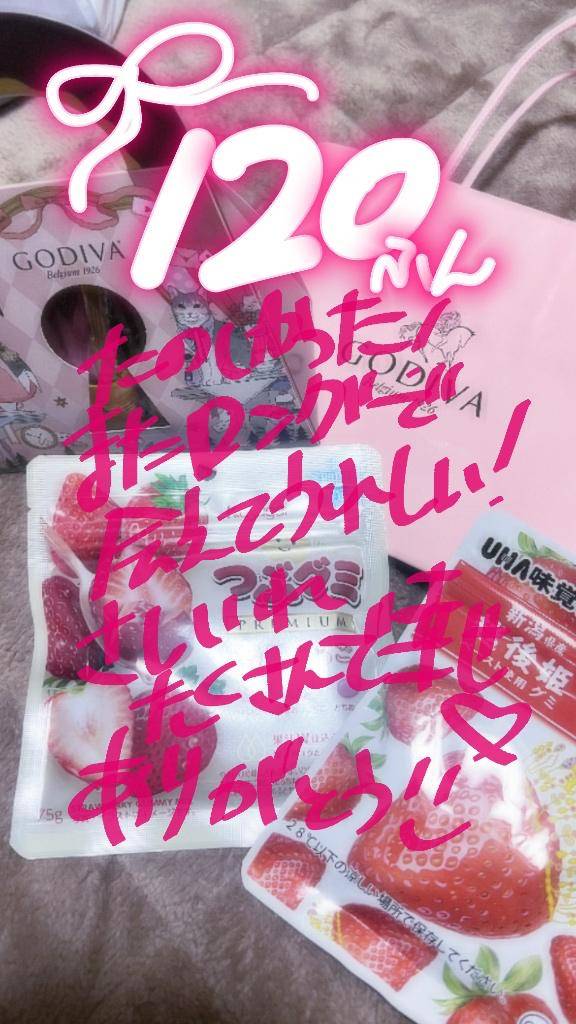 120
ふん
GODIVA
Belgium 1926
たのしかった!
GODIVA
Belgium 1926
またロングで
会えてうれしい!
UHA味覚
つぶグミ
PREMIUM
新潟県産
後姫
さいいれ
たくさんで幸せ
ありがとう
75g
STRAWBERRY GUMMY MIX
28℃以下の涼しい場所で保存してください。